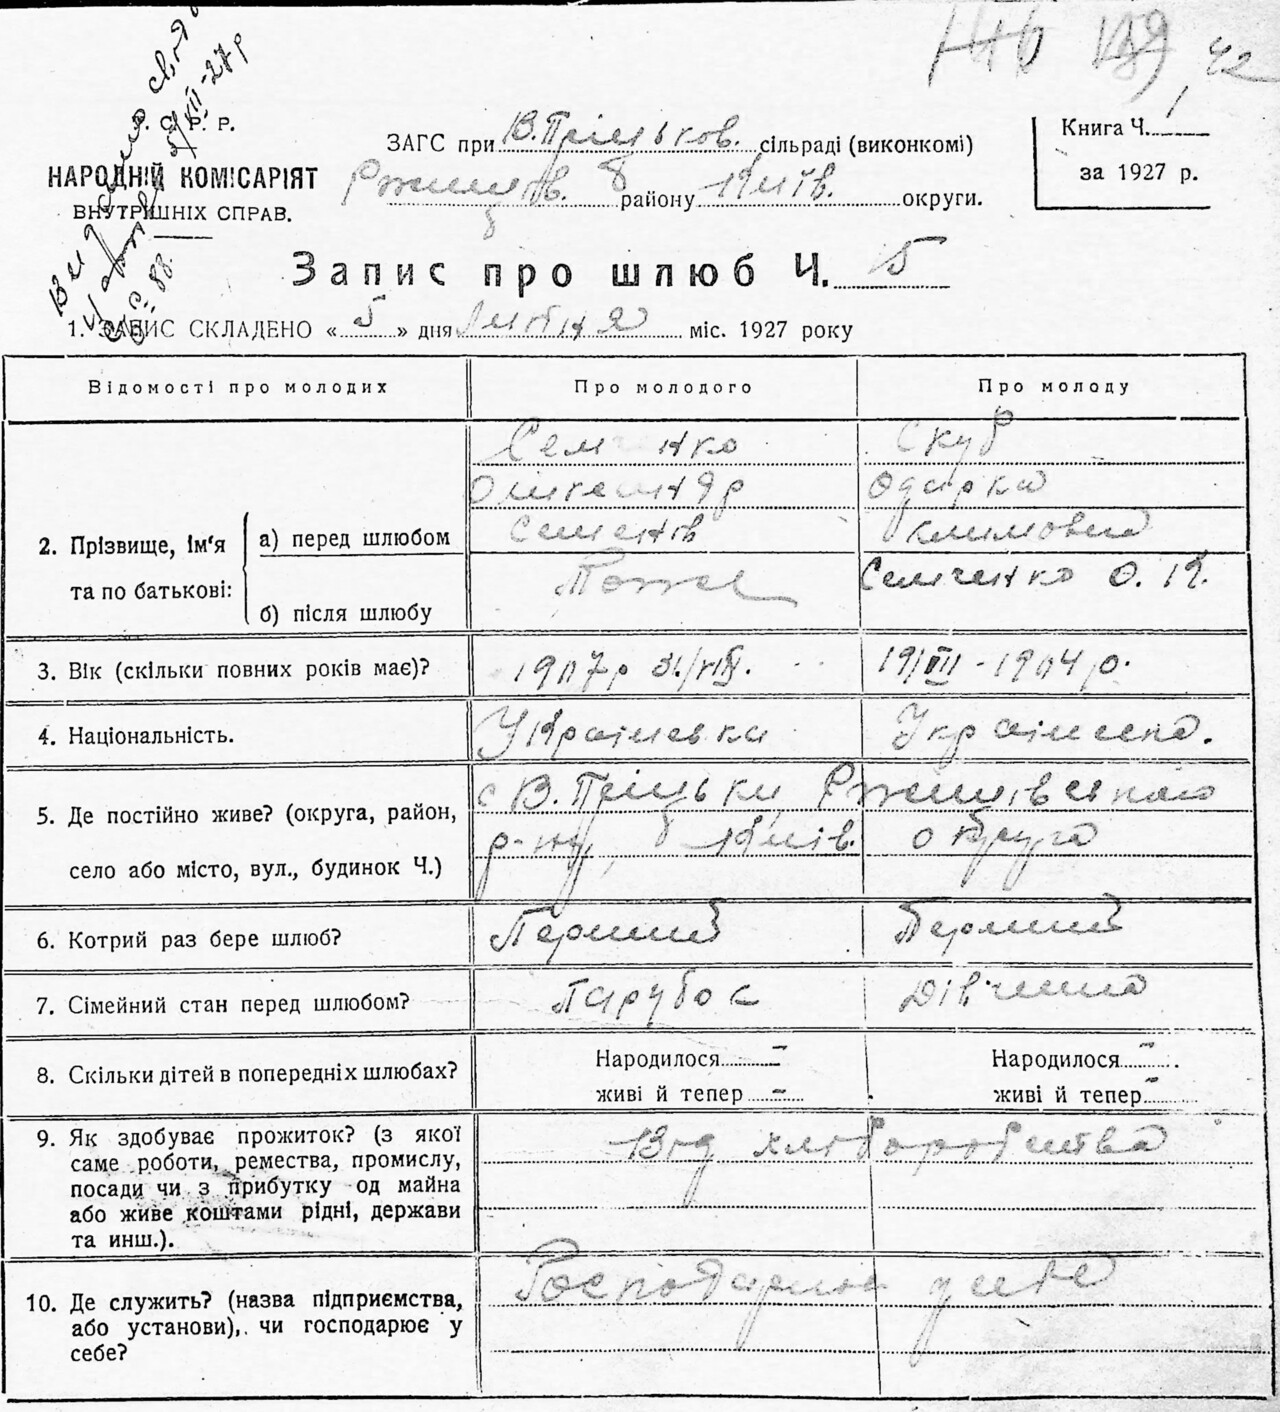 С. Р. Р.
НАРОДНІЙ КОМІСАРІЯТ
ВНУТРІШНІХ СПРАВ.
42
ЗАГС при В. Пріцьков. сільраді (виконкомі)
Ржищів. району Київ. округи.
Книга Ч. 1
за 1927 р.
Запис про шлюб Ч. 5
1. ЗАПИС СКЛАДЕНО « 5 » дня липня міс. 1927 року
Відомості про молодих Про молодого Про молоду
Семченко Скуб
Олександр Одарка
2. Прізвище, ім'я а) перед шлюбом Семенів Климовна
та по батькові: б) після шлюбу Тоже Семченко О. К.
3. Вік (скільки повних років має)? 1907р 19/III - 1904 р.
4. Національність. Українська Українська.
5. Де постійно живе? (округа, район, с В. Пріцьки Ржищівського
село або місто, вул., будинок Ч.) р-ну, Київ. округа
6. Котрий раз бере шлюб? Перший Перший
7. Сімейний стан перед шлюбом? Парубок Дівчина
8. Скільки дітей в попередніх шлюбах? Народилося - Народилося -
живі й тепер - живі й тепер -
9. Як здобуває прожиток? (з якої Від хліборобства
саме роботи, ремества, промислу,
посади чи з прибутку од майна
або живе коштами рідні, держави
та инш.).
10. Де служить? (назва підприємства, Господарює у себе
або установи), чи господарює у
себе?